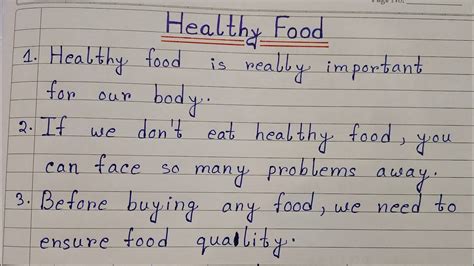 Page No.
Healthy Food
1. Healthy food is really important
for our body.
2. If we don't eat healthy food, you
can face so many problems away.
3. Before buying any food, we need to
ensure food quality.